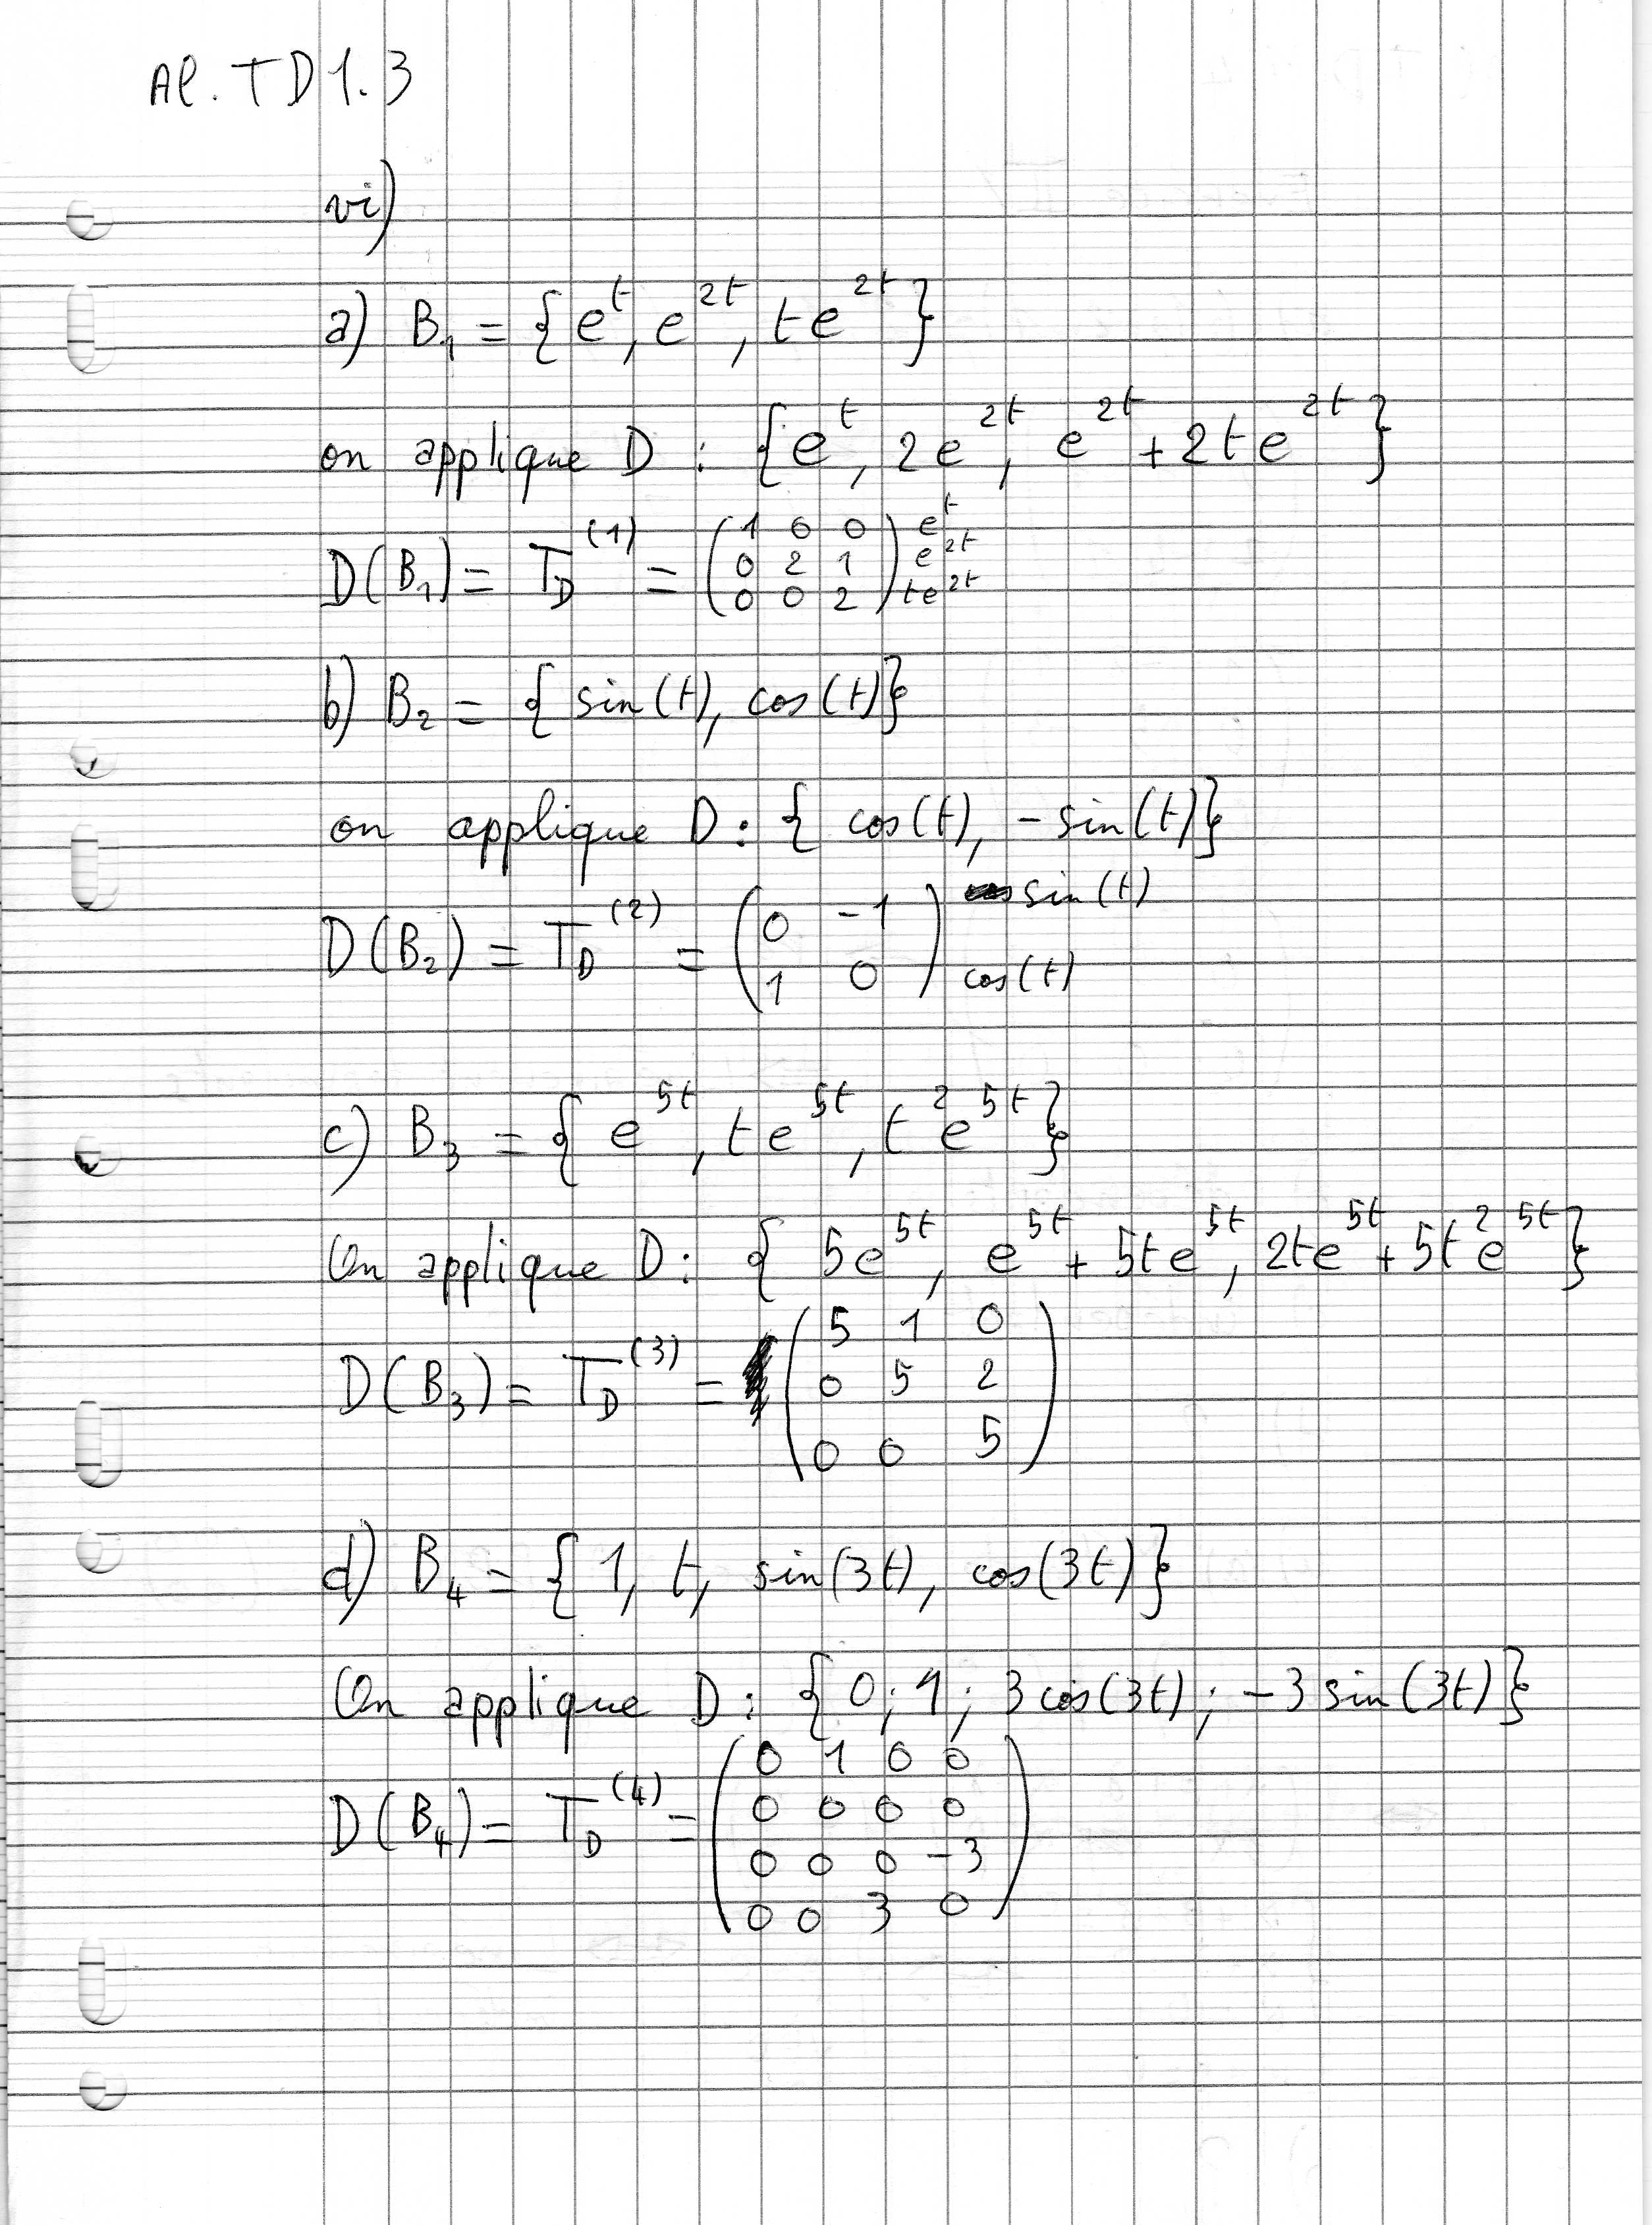 Al. TD 1.3
vi)
a) B₁ = { e^t, e^{2t}, te^{2t} }
on applique D : { e^t, 2e^{2t}, e^{2t} + 2te^{2t} }
D(B₁) = T_D^{(1)} = ( 1 0 0 ) e^t
0 2 1 e^{2t}
0 0 2 te^{2t}
b) B₂ = { sin(t), cos(t) }
on applique D : { cos(t), -sin(t) }
D(B₂) = T_D^{(2)} = ( 0 -1 ) sin(t)
1 0 cos(t)
c) B₃ = { e^{5t}, te^{5t}, t²e^{5t} }
On applique D : { 5e^{5t}, e^{5t} + 5te^{5t}, 2te^{5t} + 5t²e^{5t} }
D(B₃) = T_D^{(3)} = ( 5 1 0 )
0 5 2
0 0 5
d) B₄ = { 1, t, sin(3t), cos(3t) }
On applique D : { 0 ; 1 ; 3cos(3t) ; -3 sin(3t) }
D(B₄) = T_D^{(4)} = ( 0 1 0 0 )
0 0 0 0
0 0 0 -3
0 0 3 0